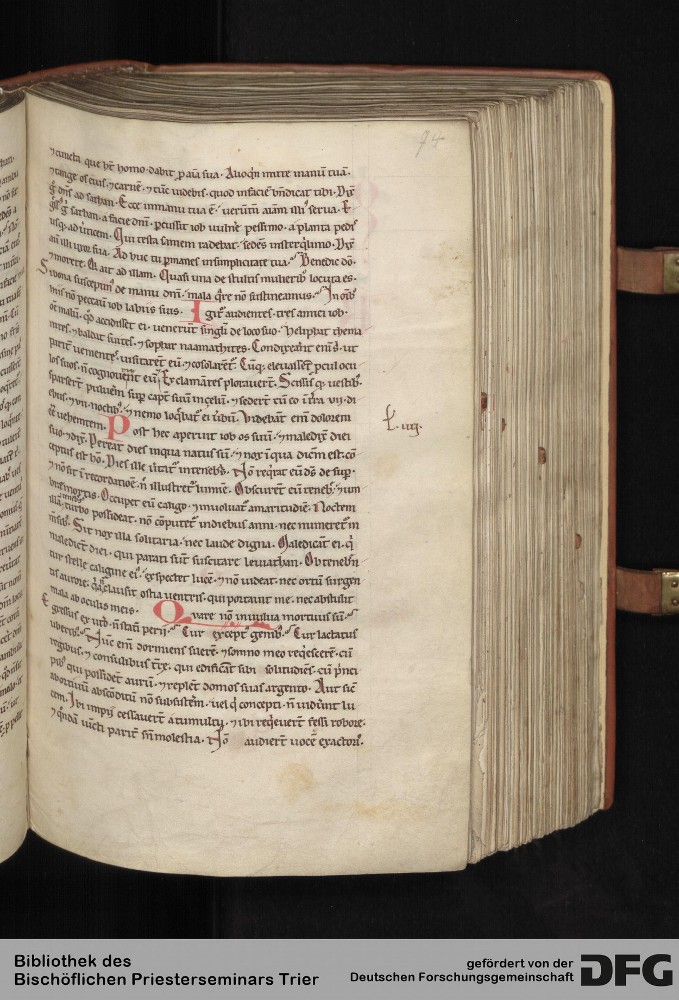 94
⁊cuncta que ht homo dabit ꝓ aīa sua. Alioqͥn mitte manū tuā.
⁊tange os eius ⁊carnē. ⁊tūc videbis. quod infaciē bn̄dicat tibi. Dix̄
g̊ dn̄s ad sathan. Ecce inmanu tua ē. uerūtn̄ aīam illiꝰ serua. E
g̊ sathan. a facie dn̄i. ꝑcussit iob vulnē pessimo. a planta pedis
usqꝫ ad uticem. Qui testa saniem radebat. sedēs insterq̇linio. Dix̄
aū illi uxor sua. Ad huc tu ꝑmanes insimplicitate tua. Benedic dō.
⁊morere. Qi ait ad illam. Quasi una de stultis mulieribꝰ locuta es.
Si bona suscepimꝰ de manu dn̄i. mala q̄re nō sustineamus. Inoībꝰ
hiis nō peccauı iob labiis suis. Igit̄ audientes tres amici iob.
oē malū. qd̄ accidisset ei. venerūt singlı̄ de loco suo. heliphat thema
nites. ⁊ baldat suites. ⁊ sophar naamathites. Condixerāt eniꝫ. ut
parit̄ uenientes uisitarēt eū. ⁊cōsolarēt̄. Cūqꝫ eleuassēt ꝓcul ocu
los suos. n̄ cognouerūt eū. Exclamātes plorauerūt. Scissisqꝫ uestibꝰ.
sparserūt puluerē suꝑ capͭ suū incelū. ⁊ sederūt cū eo ı̄ t̄ra. vii. di
ebus. ⁊ vii. noctibꝰ. ⁊ nemo loq̇bat̄ ei v̄bū. Videbāt enī dolorem
eē̄ uehementem. Post hec aperuit iob os suū. ⁊maledixͭ diei
suo. ⁊dix̄. Pereat dies inqua natus sū. ⁊ nox ı̄qua dictū est. cō
ceptus est hō. Dies ille ūtat̄ intenebͣs. Nō reqͥrat eū ds̄ de suꝑ.
⁊ nō sit ı̄ recordatiōe. n̄ illustret̄ lumīe. Obscurēt eū tenebre. ⁊ um
bra mortis. Occupet eū caligo. ⁊ inuoluat̄ amaritudiē. Noctem
illā tenebrosꝰ turbo possideat. nō cōputet̄ indiebus anni. nec numeret̄ ı̄
msibꝰ. Sit nox illa solitaria. nec laude digna. Maledicāt ei. q̇
maledicūt diei. qui parati sūt suscitare leuiathan. Obtenebrē
tur stelle caligine eiꝰ. exspectet lucē. ⁊ nō uideat. nec ortū surgen
tis aurore. q̇a n̄ clausit ostia uentris. qui portauit me. nec abstulit
mala ab oculis meis. Quare nō inuulua mortuus sū.
Egressus ex utō. n̄ statī perii. Cur exceptꝰ genibꝰ. Cur lactatus
uberibꝰ. Nūc enī dormiens silerē. ⁊somno meo reqͥescerē. cū
regibus. ⁊ consulibus t̄re. qui edificāt sibi solitudiēs. cū pͥnci
pibꝰ qui possidēt aurū. ⁊replēt domos suas argento. Aut sic̄
abortiuū abscōditū nō subsistm̄. uel q̇ concepti. n̄ viderūt lu
cem. Ibi impii cessauerūt atumultu. ⁊ ibi reqͥeuerūt fessi robore.
⁊ qͦndā uīcti parit̄ sn̄ molestia. Nō audierūt uocē exactoris.
L. iiij.
Bibliothek des
Bischöflichen Priesterseminars Trier
gefördert von der
Deutschen Forschungsgemeinschaft
DFG